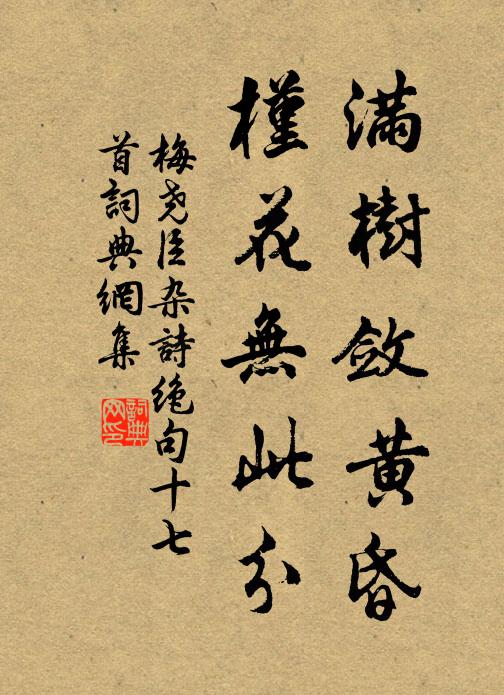 滿樹斂黃昏
槿花無此分
梅尧臣杂詩绝句十七
首詞典網集
詞典
网印